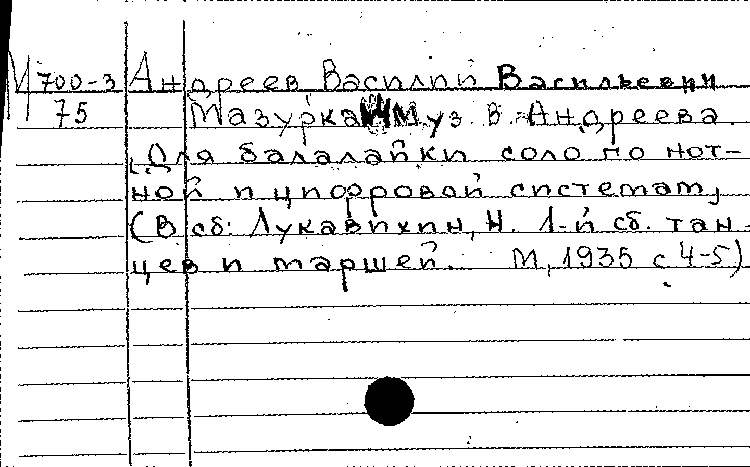 М 700-3 Андреев Василий Васильевич
75 Мазурка Муз. В. Андреева.
Для балалайки соло по нот-
ной и цифровой системам,
(В сб: Лукавихин, Н. 1-й сб. тан-
цев и маршей. М, 1935 с 4-5)